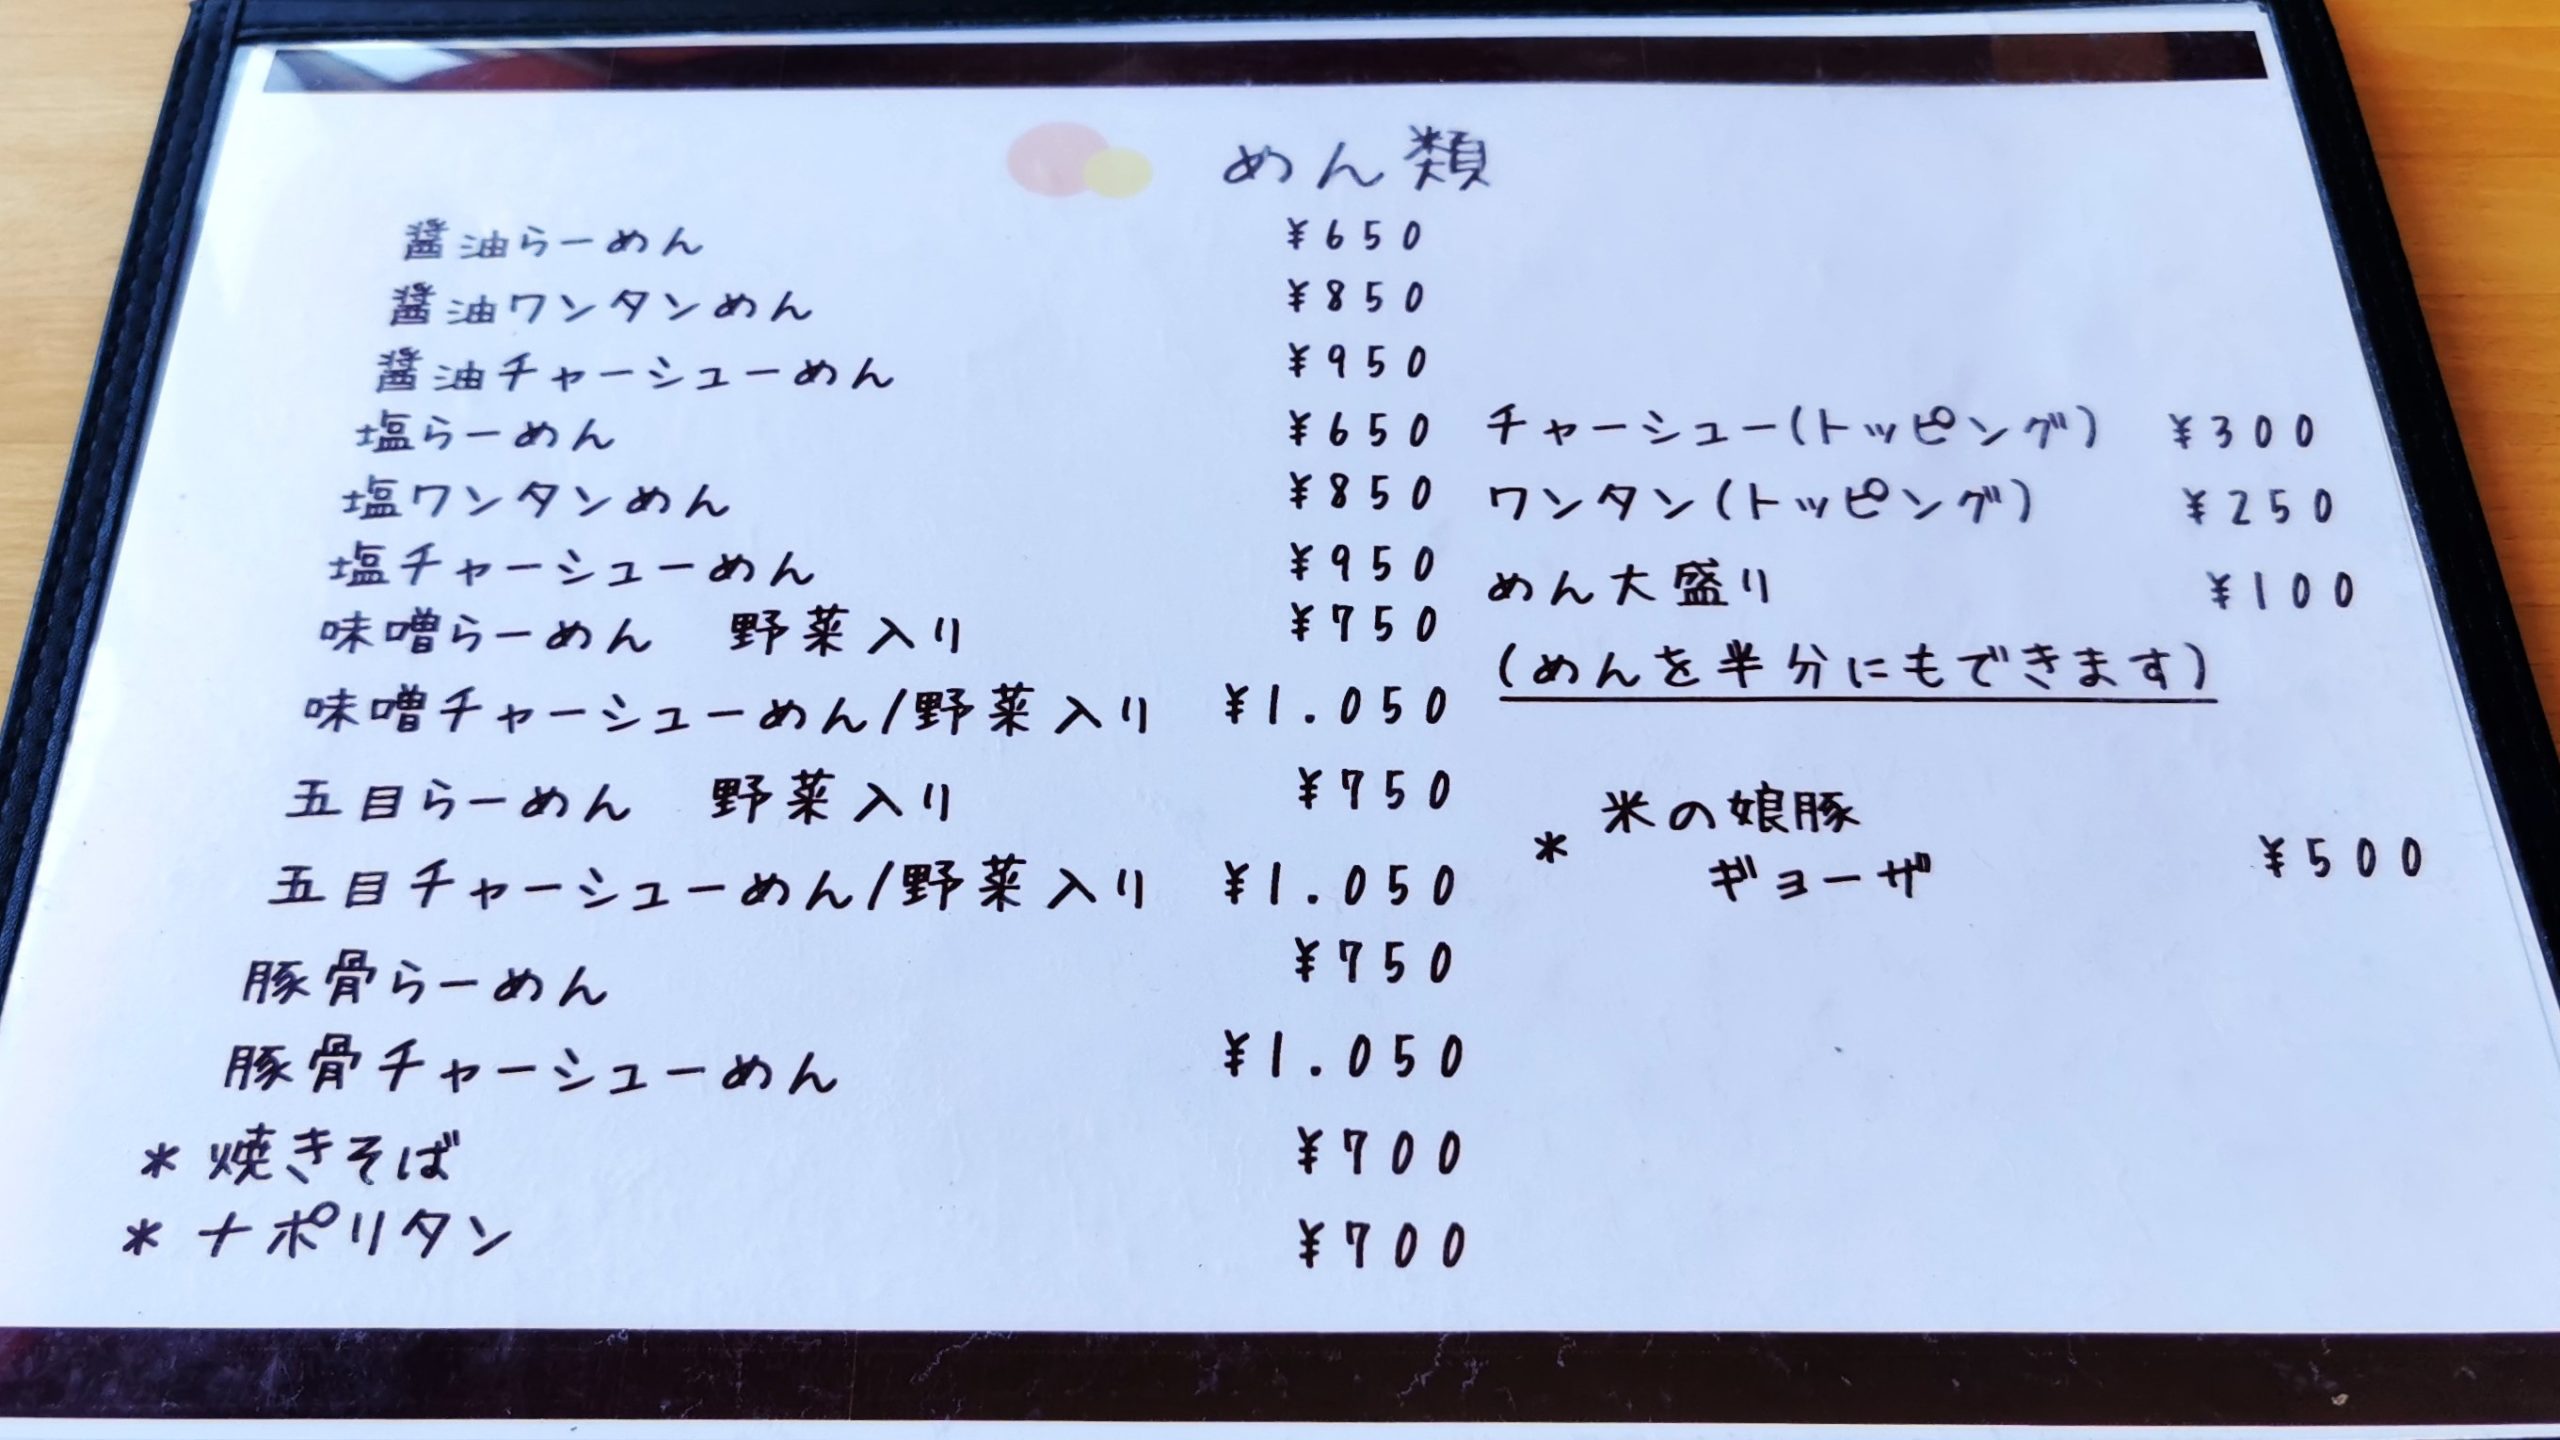 めん類
醤油らーめん ¥650
醤油ワンタンめん ¥850
醤油チャーシューめん ¥950
塩らーめん ¥650
塩ワンタンめん ¥850
塩チャーシューめん ¥950
味噌らーめん 野菜入り ¥750
味噌チャーシューめん/野菜入り ¥1.050
五目らーめん 野菜入り ¥750
五目チャーシューめん/野菜入り ¥1.050
豚骨らーめん ¥750
豚骨チャーシューめん ¥1.050
*焼きそば ¥700
*ナポリタン ¥700
チャーシュー(トッピング) ¥300
ワンタン(トッピング) ¥250
めん大盛り ¥100
(めんを半分にもできます)
* 米の娘豚
ギョーザ ¥500